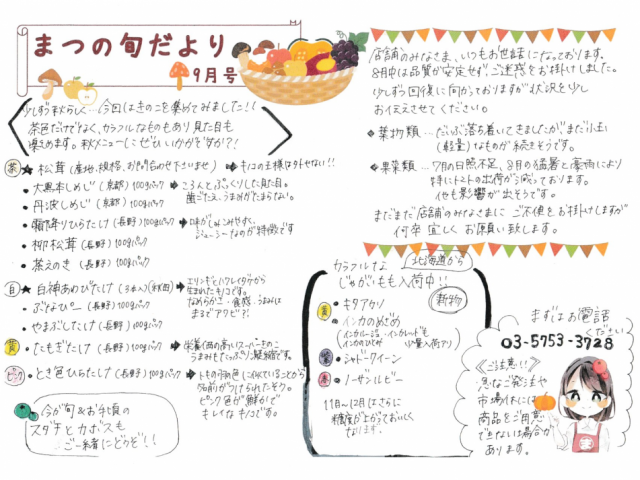 まつの旬だより
9月号
少しずつ秋らしく…今回はきのこを集めてみました!!
茶色だけでなく、カラフルなものもあり見た目も
楽しめます。秋メニューにぜひいかがですか?!
茶 ★ 松茸(産地、規格、お問い合わせ下さいませ) → キノコの王様はハナせない!!
• 大黒本しめじ(京都)100gパック → ころんとぷっくりした見た目。
• 丹波しめじ(京都)100gパック 歯ごたえ、うま味がたまらない。
• 霜降りひらたけ(長野)100gパック → 味がしみこみやすく、
ジューシーなのが特徴です
• 柳松茸(長野)100gパック
• 茶えのき(長野)100gパック
白 ★ 白神あわびたけ(3本入)(秋田) → エリンギとバイリングから
生まれたキノコです。
• ぶなぴー(長野)100gパック なめらかさ・食感・うまみは
まるでアワビ?!
• やまぶしたけ(長野)100gパック
黄 • たもぎたけ(長野)100gパック → 栄養価の高いスーパーきのこ
うまみもたっぷり凝縮です。
ピンク • とき色ひらたけ(長野)100gパック → トキの羽の色に似ていることから
名前がつけられたそう。
ピンク色が鮮やかで
キレイなキノコです。
今が旬&お手頃の
スダチとカボスも
ご一緒にどうぞ!!
店舗のみなさま、いつもお世話になっております。
8月中は品質が安定せず、ご迷惑をお掛けしました。
少しずつ回復に向かっておりますが状況を少し
お伝えさせてください。
◆ 葉物類…だいぶ落ち着いてきましたがまだ小玉
(軽量)なものが続きそうです。
◆ 果菜類…7月の日照不足、8月の猛暑と豪雨により
特にトマトの出荷が減っております。
他も影響が出そうです。
まだまだ店舗のみなさまに ご不便をお掛けしますが
何卒宜しく お願い致します。
カラフルな 北海道から
じゃがいもも入荷中!!
新物
黄 • キタアカリ
• インカのめざめ
紫 • シャドークイーン
• ノーザンルビー
11月〜12月はさらに
糖度が上がっておいしく
なります。
まずはお電話
ください
03-5753-3728
《ご注意!!》
急なご発注や
市場休には
商品をご用意
できない場合が
あります。
ま